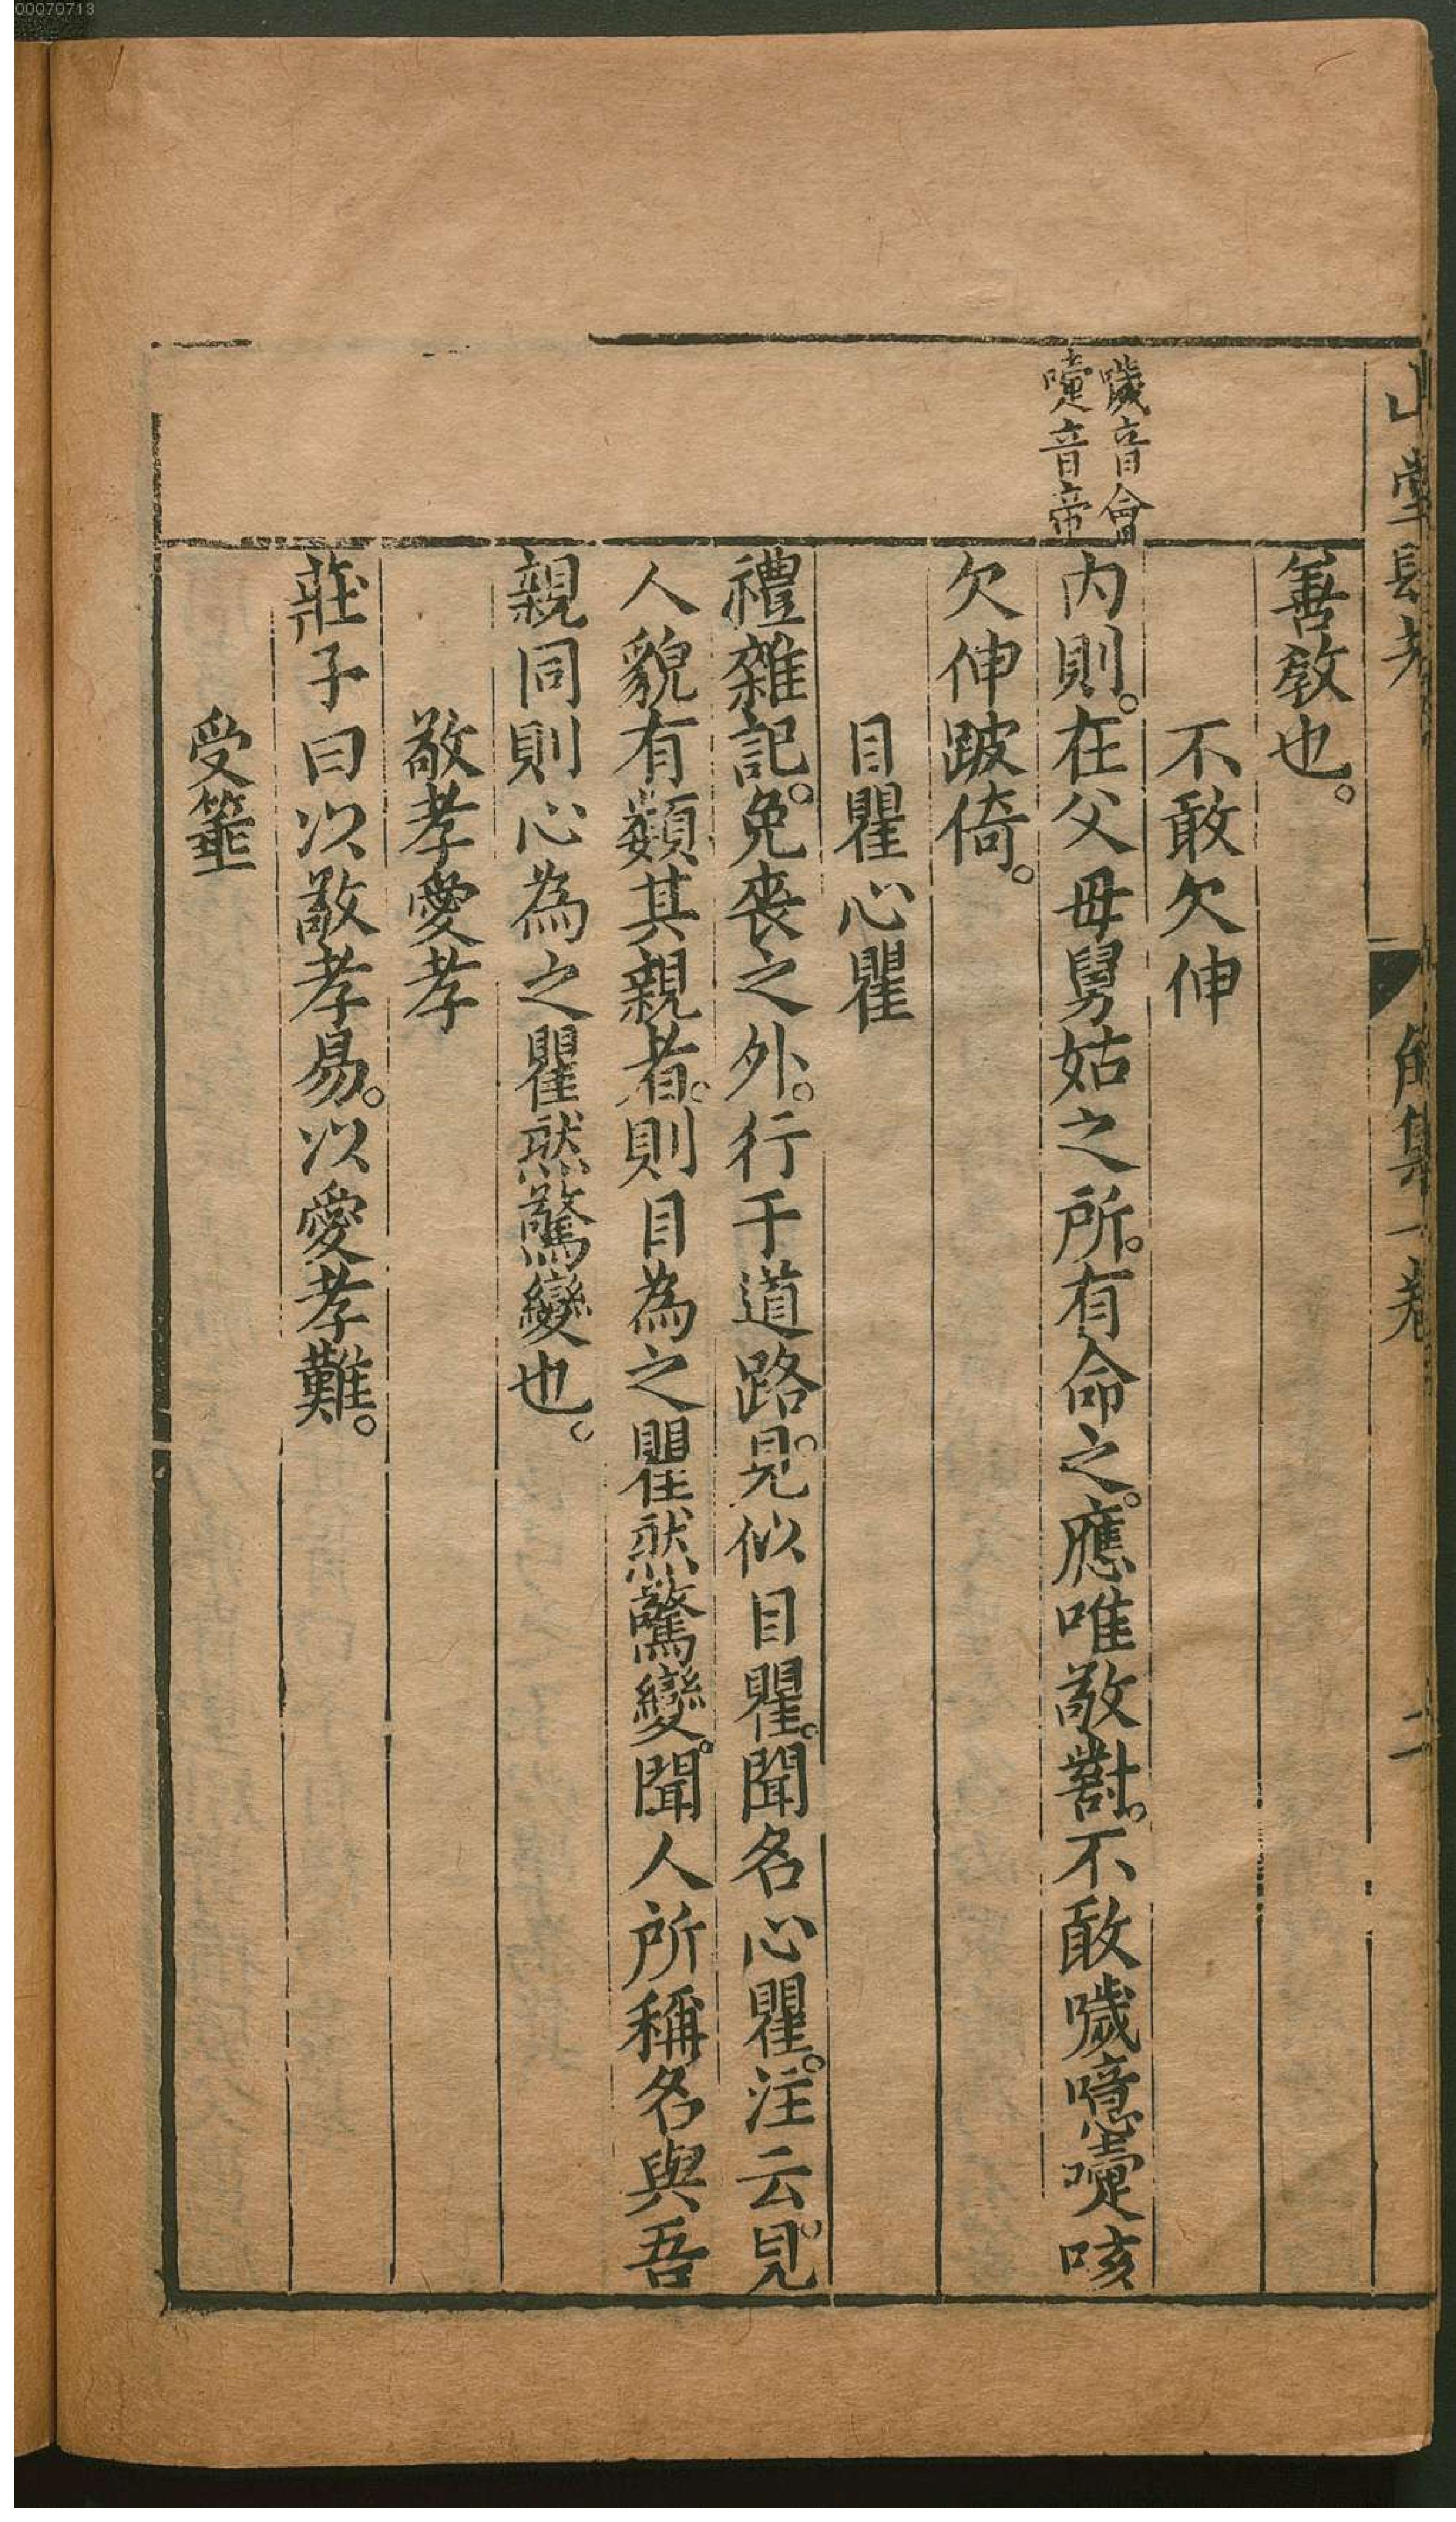 00070713
善教也。
不敢欠伸
噦音會
嚏音帝
內則。在父母舅姑之所。有命之。應唯敬對。不敢噦噫嚏咳
欠伸跛倚。
目瞿心瞿
禮雜記。免喪之外。行于道路。見似目瞿。聞名心瞿。注云。見
人貌有類其親者。則目為之瞿然驚變。聞人所稱名與吾
親同則心為之瞿然驚變也。
敬孝愛孝
莊子曰以敬孝易。以愛孝難。
受箠